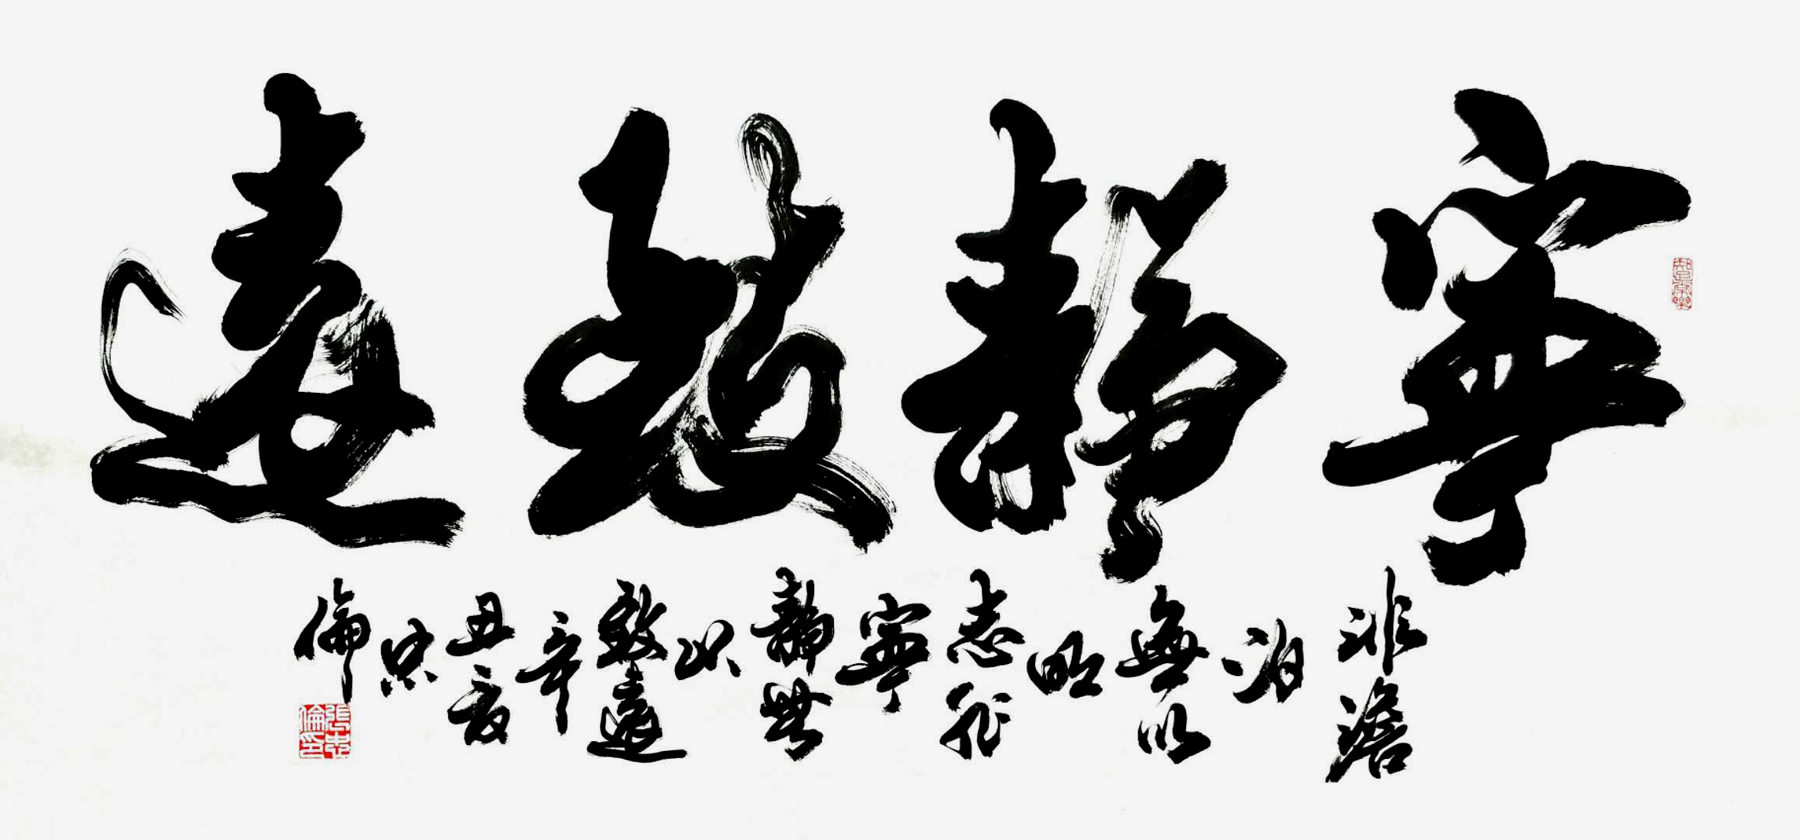 寧靜致遠
非澹泊無以明志非寧靜無以致遠辛丑夏忠倫
張忠倫印